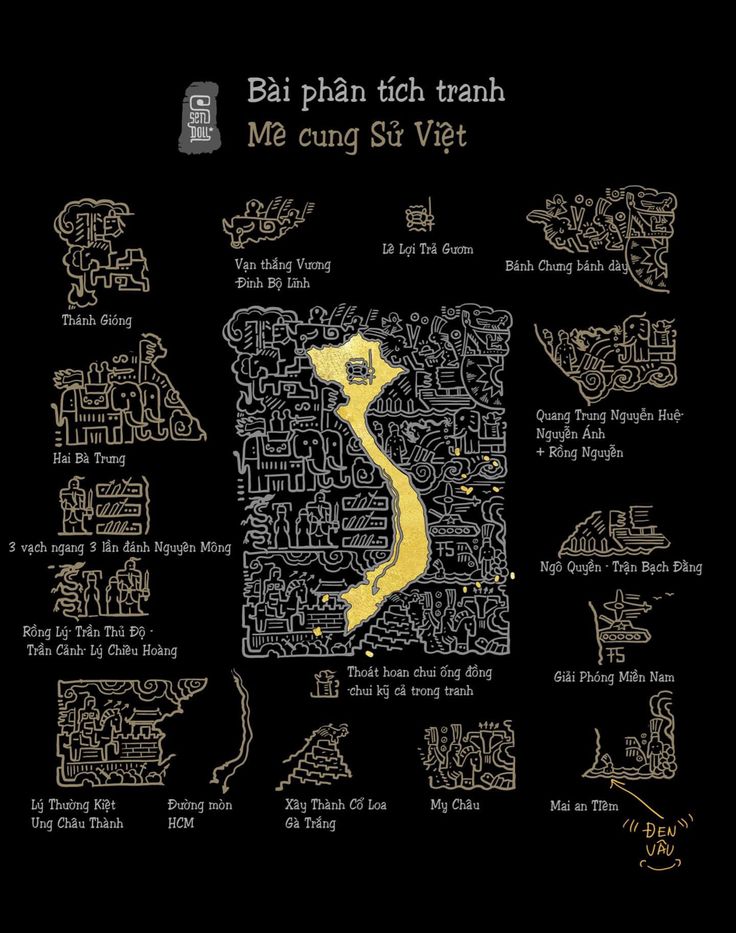 SEN
DOLL
Bài phân tích tranh
Mê cung Sử Việt
Thánh Gióng
Vạn thắng Vương
Đinh Bộ Lĩnh
Lê Lợi Trả Gươm
Bánh Chưng bánh dày
Hai Bà Trưng
Quang Trung Nguyễn Huệ-
Nguyễn Ánh
+ Rồng Nguyễn
3 vạch ngang 3 lần đánh Nguyên Mông
Ngô Quyền - Trận Bạch Đằng
75
Rồng Lý- Trần Thủ Độ -
Trần Cảnh- Lý Chiêu Hoàng
75
Giải Phóng Miền Nam
Thoát hoan chui ống đồng
-chui kỹ cả trong tranh
Lý Thường Kiệt
Ung Châu Thành
Đường mòn
HCM
Xây Thành Cổ Loa
Gà Trắng
My Châu
Mai an TIêm
ĐEN
VÂU